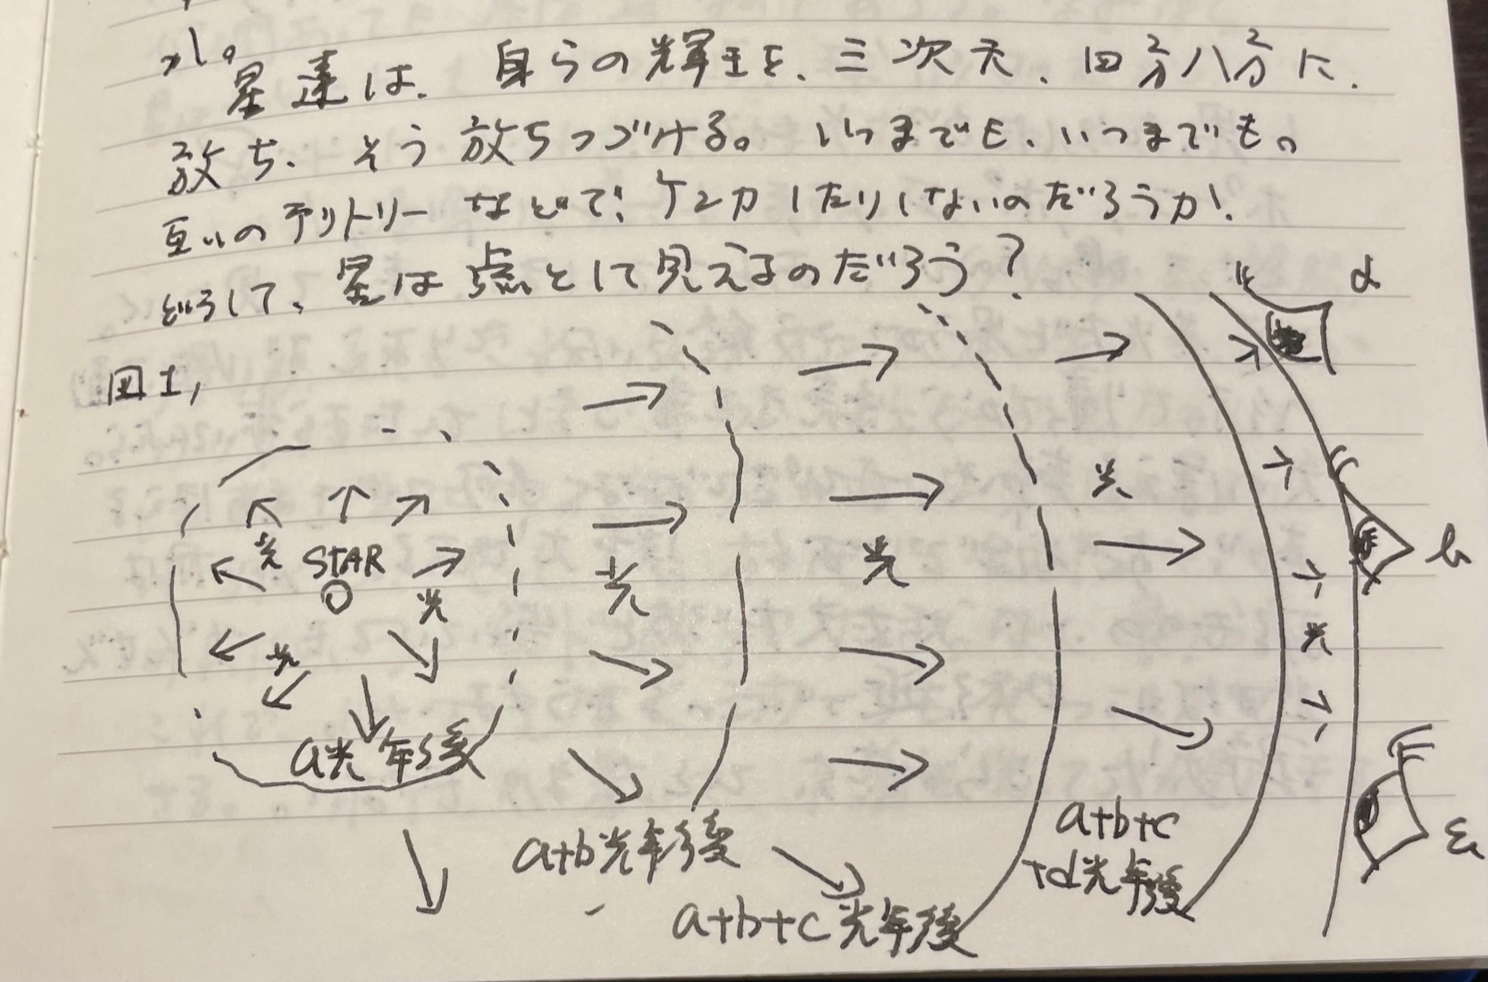 星達は、自らの輝王を、三次元、四方八方に、
放ち、そう放ちつづける。いつまでも、いつまでも。
互いのテリトリーなどで、ケンカしたりしないのだろうか。
どうして、星は点として見えるのだろう?
図1,
光
STAR
光
光
a光年後
光
a+b光年後
光
a+b+c光年後
光
a+b+c
+d光年後
光